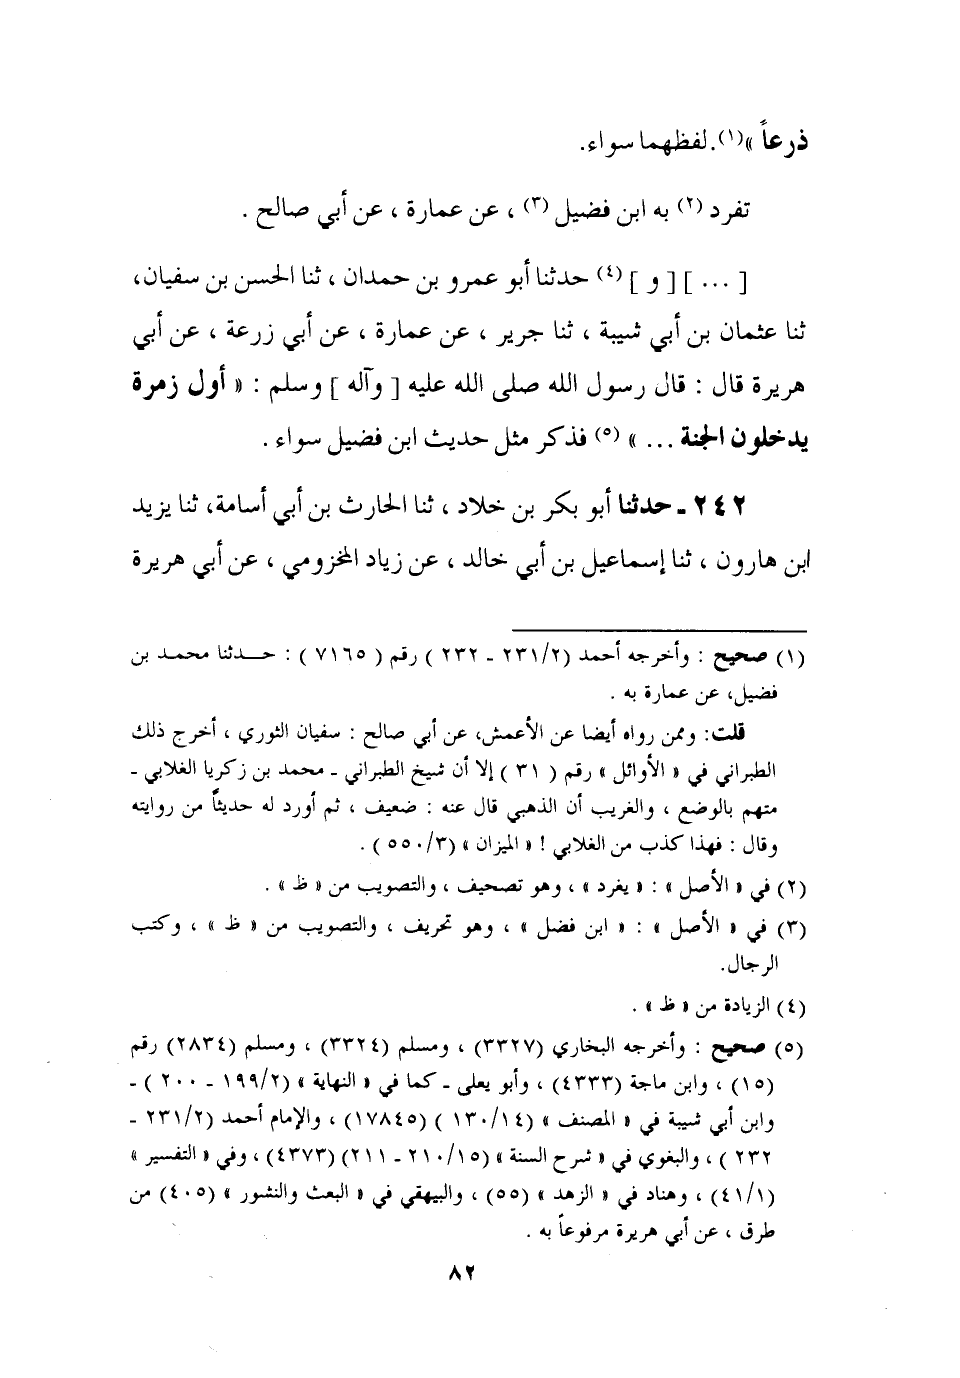 ذرعاً »(١). لفظهما سواء.
تفرد (٢) به ابن فضيل (٣) ، عن عمارة ، عن أبي صالح .
[ ... ] [ و ] (٤) حدثنا أبو عمرو بن حمدان ، ثنا الحسن بن سفيان،
ثنا عثمان بن أبي شيبة ، ثنا جرير ، عن عمارة ، عن أبي زرعة ، عن أبي
هريرة قال : قال رسول الله صلى الله عليه [ وآله ] وسلم : « أول زمرة
يدخلون الجنة ... » (٥) فذكر مثل حديث ابن فضيل سواء .
٢٤٢ ـ حدثنا أبو بكر بن خلاد ، ثنا الحارث بن أبي أسامة، ثنا يزيد
ابن هارون ، ثنا إسماعيل بن أبي خالد ، عن زياد المخزومي ، عن أبي هريرة
(١) صحيح : وأخرجه أحمد (٢٣١/٢ ـ ٢٣٢ ) رقم ( ٧١٦٥ ) : حـــدثنا محمـد بن
فضيل، عن عمارة به .
قلت: وممن رواه أيضا عن الأعمش، عن أبي صالح : سفيان الثوري ، أخرج ذلك
الطبراني في « الأوائل » رقم ( ٣١ ) إلا أن شيخ الطبراني ـ محمد بن زكريا الغلابي ـ
متهم بالوضع ، والغريب أن الذهبي قال عنه : ضعيف ، ثم أورد له حديثاً من روايته
وقال : فهذا كذب من الغلابي ! « الميزان » (٥٥٠/٣ ) .
(٢) في « الأصل » : « يغرد » ، وهو تصحيف ، والتصويب من « ظ » .
(٣) في « الأصل » : « ابن فضل » ، وهو تحريف ، والتصويب من « ظ » ، وكتب
الرجال.
(٤) الزيادة من « ظ » .
(٥) صحيح : وأخرجه البخاري (٣٣٢٧) ، ومسلم (٣٣٢٤) ، ومسلم (٢٨٣٤) رقم
(١٥) ، وابن ماجة (٤٣٣٣) ، وأبو يعلى ـ كما في « النهاية » (١٩٩/٢ ـ ٢٠٠ ) ـ
وابن أبي شيبة في « المصنف » (١٣٠/١٤ ) (١٧٨٤٥) ، والإمام أحمد (٢٣١/٢ ـ
٢٣٢ ) ، والبغوي في « شرح السنة » (٢١٠/١٥ ـ ٢١١) (٤٣٧٣) ، وفي « التفسير »
(٤١/١) ، وهناد في « الزهد » (٥٥) ، والبيهقي في « البعث والنشور » (٤٠٥) من
طرق ، عن أبي هريرة مرفوعاً به .
٨٢